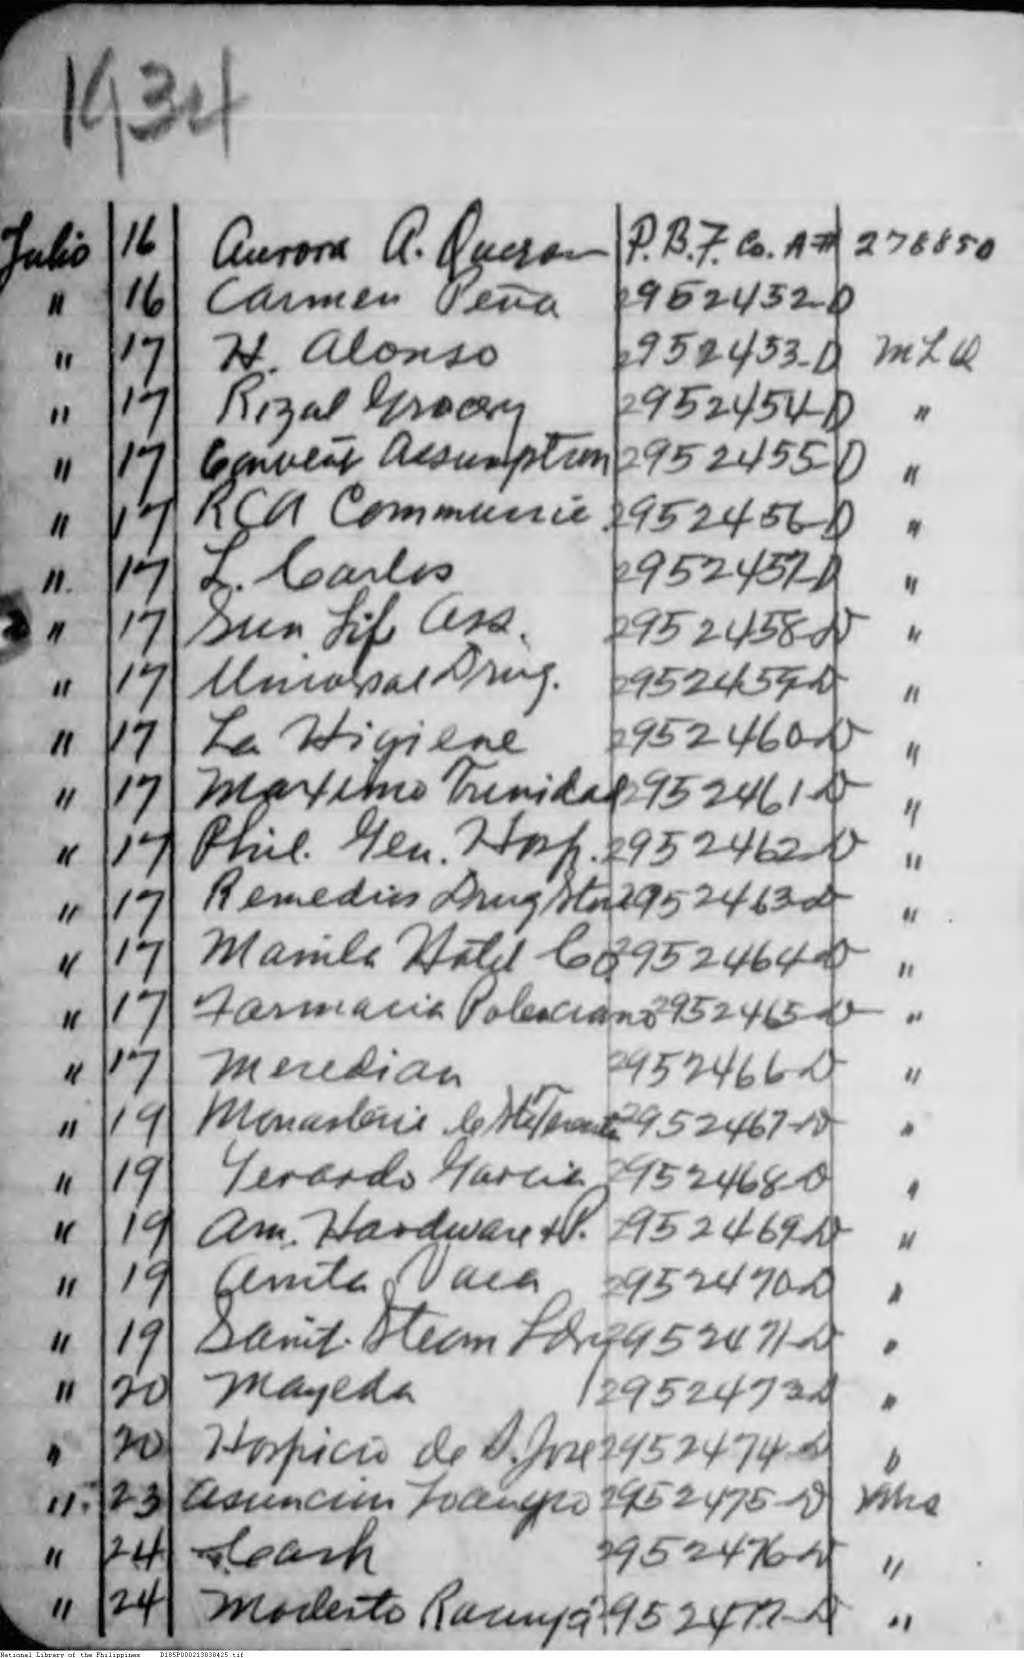 1934
Julio 16 Aurora A. Quezon P.B.F. Co. A# 278850
" 16 Carmen Peña 2952452-D
" 17 H. Alonso 2952453-D MLQ
" 17 Rizal Grocery 2952454-D "
" 17 Convent Assumption 2952455-D "
" 17 RCA Communic. 2952456-D "
". 17 L. Carlos 2952457-D "
" 17 Sun Life Ass. 2952458-D "
" 17 Universal Drug. 2952459-D "
" 17 La Higiene 2952460-D "
" 17 Maximo Trinidad 2952461-D "
" 17 Phil. Gen. Hosp. 2952462-D "
" 17 Remedios Drug Store 2952463-D "
" 17 Manila Hotel Co. 2952464-D "
" 17 Farmacia Policiano 2952465-D "
" 17 Meredian 2952466-D "
" 19 Monasterio 2952467-D "
" 19 Gerardo Garcia 2952468-D "
" 19 Am. Hardware & P. 2952469-D "
" 19 Anita 2952470-D "
" 19 Sanit. Steam Ldry 2952471-D "
" 20 Mayeda 2952473-D "
" 20 Hospicio de S. Jose 2952474-D "
". 23 Asuncion 2952475-D
" 24 Cash 2952476-D "
" 24 Modesto 2952477-D "
National Library of the Philippines D185P000213838425.tif